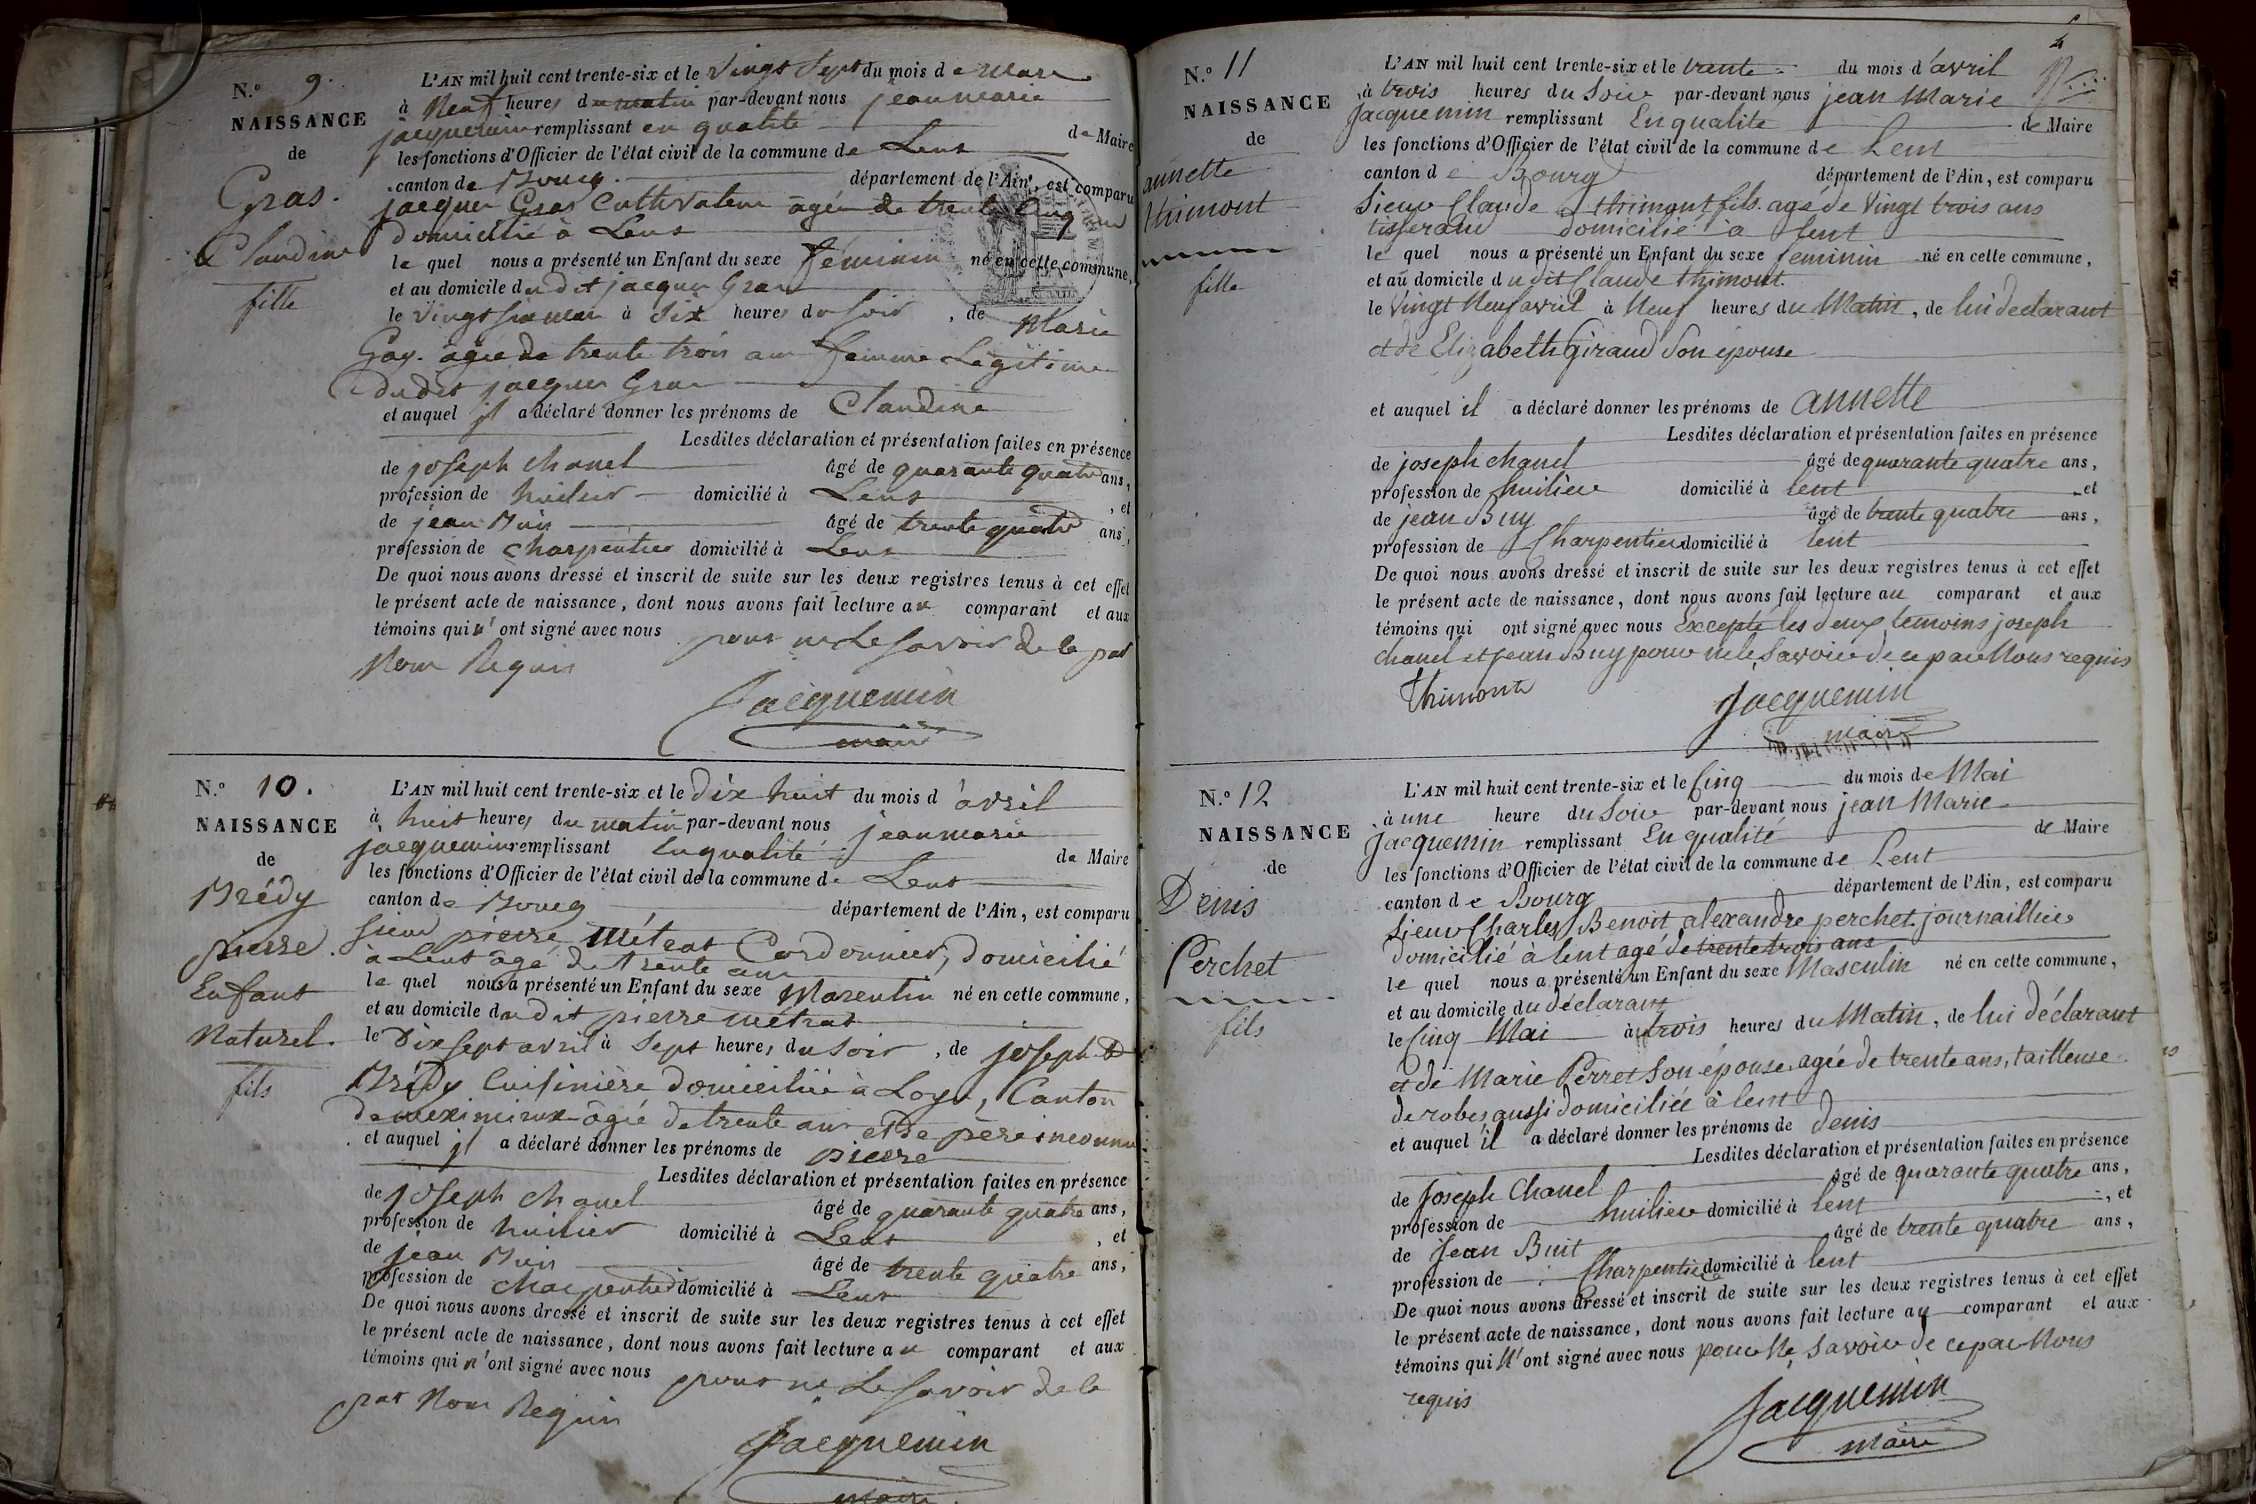 N.º 9.
NAISSANCE
de
Gras.
Claudine
fille
L'AN mil huit cent trente-six et le vingt sept du mois de mars
à Neuf heures du matin par-devant nous jean marie
jacquemin remplissant en qualité de Maire
les fonctions d'Officier de l'état civil de la commune de Lent
canton de Bourg département de l'Ain, est comparu
jacques Gras Cultivateur agée de trente Cinq ans
domicilié à Lent
le quel nous a présenté un Enfant du sexe féminin né en cette commune,
et au domicile du dit jacques Gras
le vingt six mars à Six heures du soir, de Marie
Gay. agée de trente trois ans femme Légitime
dudit jacques Gras
et auquel il a déclaré donner les prénoms de Claudine
Lesdites déclaration et présentation faites en présence
de joseph chanel âgé de quarante quatre ans,
profession de huilier domicilié à Lent, et
de jean Buis âgé de trente quatre ans,
profession de charpentier domicilié à Lent
De quoi nous avons dressé et inscrit de suite sur les deux registres tenus à cet effet
le présent acte de naissance, dont nous avons fait lecture au comparant et aux
témoins qui n'ont signé avec nous pour ne Le savoir de ce par
Nous Requis
Jacquemin
maire
N.º 10.
NAISSANCE
de
Brédy
pierre.
Enfant
Naturel.
fils
L'AN mil huit cent trente-six et le dix huit du mois d'avril
à huit heures du matin par-devant nous jean marie
jacquemin remplissant En qualité de Maire
les fonctions d'Officier de l'état civil de la commune de Lent
canton de Bourg département de l'Ain, est comparu
sieur pierre Métrat Cordonnier, domicilié
à Lent agé de trente ans
le quel nous a présenté un Enfant du sexe Masculin né en cette commune,
et au domicile du dit pierre métrat
le Dix sept avril à Sept heures du soir, de joseph te
Brédy Cuisinière domiciliée à Loye, Canton
de meximieux agée de trente ans et de père inconnu
et auquel il a déclaré donner les prénoms de pierre
Lesdites déclaration et présentation faites en présence
de joseph chanel âgé de quarante quatre ans,
profession de huilier domicilié à Lent, et
de jean Buis âgé de trente quatre ans,
profession de charpentier domicilié à Lent
De quoi nous avons dressé et inscrit de suite sur les deux registres tenus à cet effet
le présent acte de naissance, dont nous avons fait lecture au comparant et aux
témoins qui n'ont signé avec nous pour ne Le savoir de ce
par Nous Requis
Jacquemin
maire
N.º 11
NAISSANCE
de
annette
thimont
fille
L'AN mil huit cent trente-six et le trente du mois d'avril
à trois heures du Soir par-devant nous jean Marie
Jacquemin remplissant En qualité de Maire
les fonctions d'Officier de l'état civil de la commune de Lent
canton de Bourg département de l'Ain, est comparu
Sieur Claude thimont fils agé de vingt trois ans
tisserand domicilié à lent
le quel nous a présenté un Enfant du sexe feminin né en cette commune,
et au domicile du dit Claude thimont.
le vingt Neuf avril à Neuf heures du Matin, de lui declarant
et de Elizabeth Giraud Son épouse
et auquel il a déclaré donner les prénoms de annette
Lesdites déclaration et présentation faites en présence
de joseph chanel âgé de quarante quatre ans,
profession de huilière domicilié à lent, et
de jean Buy âgé de trente quatre ans,
profession de Charpentier domicilié à lent
De quoi nous avons dressé et inscrit de suite sur les deux registres tenus à cet effet
le présent acte de naissance, dont nous avons fait lecture au comparant et aux
témoins qui ont signé avec nous Excepté les deux temoins joseph
chanel et jean Buy pour ne le Savoir de ce par Nous requis
Thimont
Jacquemin
maire
N.º 12
NAISSANCE
de
Denis
Perchet
fils
L'AN mil huit cent trente-six et le Cinq du mois de Mai
à une heure du Soir par-devant nous jean Marie
Jacquemin remplissant En qualité de Maire
les fonctions d'Officier de l'état civil de la commune de Lent
canton de Bourg département de l'Ain, est comparu
Sieur Charles Benoit alexandre perchet journaillier
domicilié à lent agé de trente trois ans
le quel nous a présenté un Enfant du sexe Masculin né en cette commune,
et au domicile du déclarant
le Cinq Mai à trois heures du Matin, de lui déclarant
et de Marie Perret son épouse agée de trente ans, tailleuse
de robes, aussi domiciliée à lent
et auquel il a déclaré donner les prénoms de denis
Lesdites déclaration et présentation faites en présence
de Joseph Chanel âgé de quarante quatre ans,
profession de huilier domicilié à lent, et
de Jean Buit âgé de trente quatre ans,
profession de Charpentier domicilié à lent
De quoi nous avons dressé et inscrit de suite sur les deux registres tenus à cet effet
le présent acte de naissance, dont nous avons fait lecture au comparant et aux
témoins qui N'ont signé avec nous pour Ne savoir de ce par Nous
requis
Jacquemin
maire